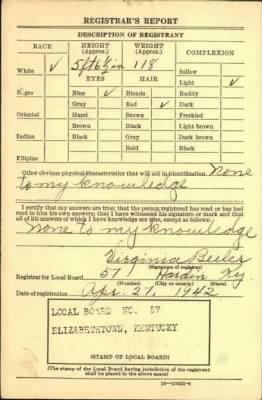 REGISTRAR'S REPORT
DESCRIPTION OF REGISTRANT
RACE HEIGHT (Approx.) WEIGHT (Approx.) COMPLEXION
White ✓ 5 ft 6½ in 118 Sallow
EYES HAIR Light ✓
Negro Blue ✓ Blonde Ruddy
Gray Red ✓ Dark
Oriental Hazel Brown Freckled
Brown Black Light brown
Indian Black Gray Dark brown
Bald Black
Filipino
Other obvious physical characteristics that will aid in identification None
to my knowledge
I certify that my answers are true; that the person registered has read or has had
read to him his own answers; that I have witnessed his signature or mark and that
all of his answers of which I have knowledge are true, except as follows:
None to my knowledge
Virginia Beeler
(Signature of registrar)
Registrar for Local Board 57 Hardin Ky
(Number) (City or county) (State)
Date of registration Apr. 27, 1942
LOCAL BOARD NO. 57
ELIZABETHTOWN, KENTUCKY
(STAMP OF LOCAL BOARD)
(The stamp of the Local Board having jurisdiction of the registrant
shall be placed in the above space)